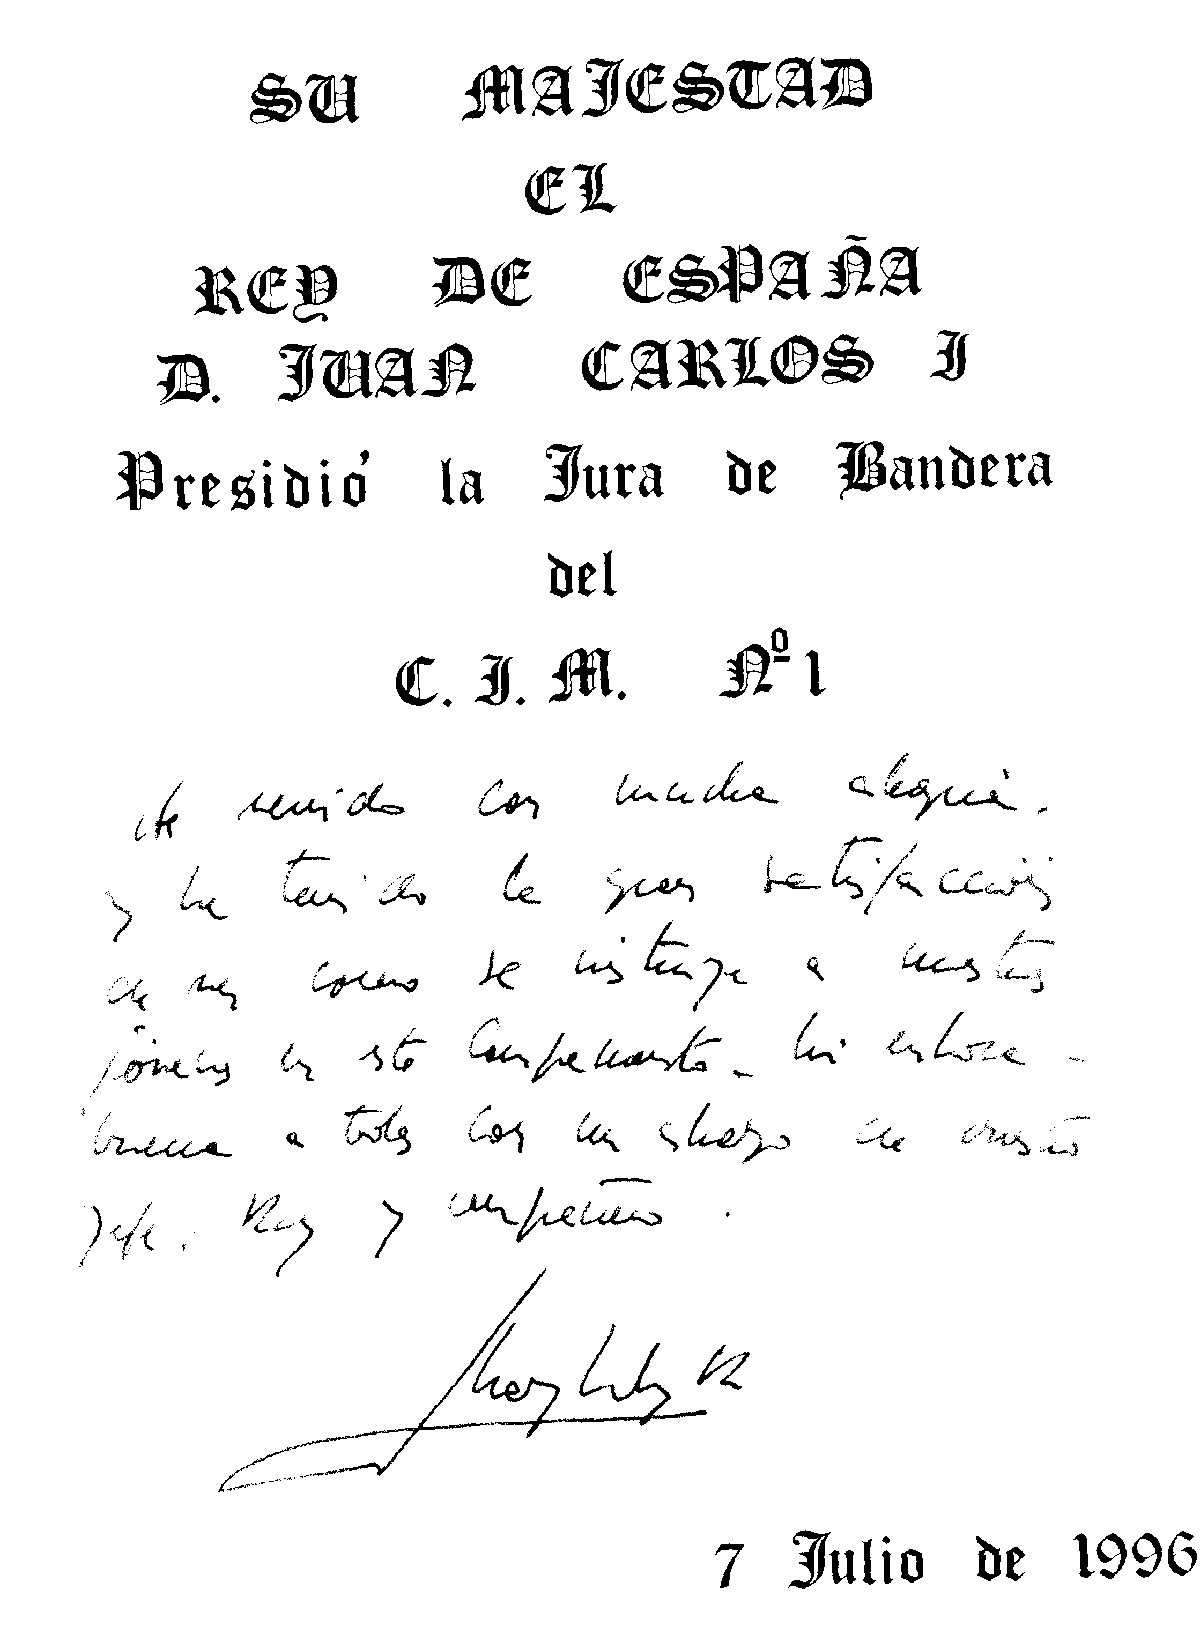 SU MAJESTAD
EL
REY DE ESPAÑA
D. JUAN CARLOS I
Presidió la Jura de Bandera
del
C. I. M. Nº 1
He venido con mucha alegría.
y he tenido la gran satisfacción
de ver como se instruye a nuestros
jóvenes en este Campamento. Mi enhora-
buena a todos con un abrazo de vuestro
Jefe. Rey y compañero.
Juan Carlos R
7 Julio de 1996